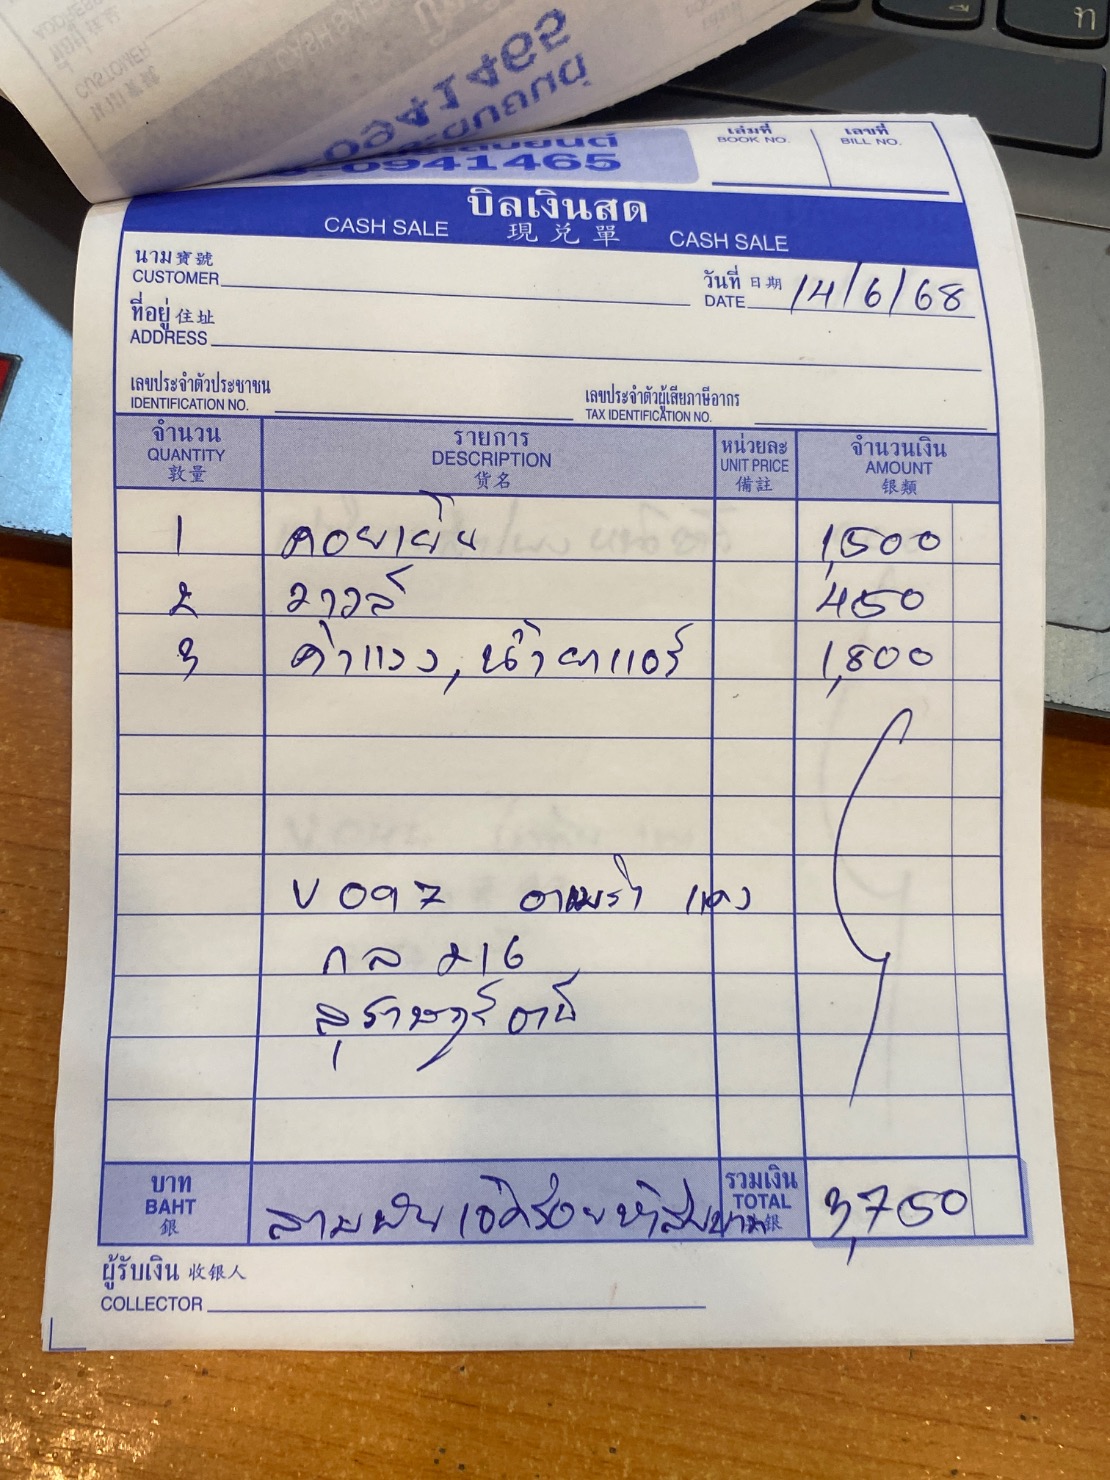 เล่มที่
BOOK NO.
เลขที่
BILL NO.
0941465
บิลเงินสด
CASH SALE 現兑單 CASH SALE
นาม 寶號
CUSTOMER
วันที่ 日期
DATE 14/6/68
ที่อยู่ 住址
ADDRESS
เลขประจำตัวประชาชน
IDENTIFICATION NO.
เลขประจำตัวผู้เสียภาษีอากร
TAX IDENTIFICATION NO.
จำนวน รายการ หน่วยละ จำนวนเงิน
QUANTITY DESCRIPTION UNIT PRICE AMOUNT
敦量 货名 備註 银類
1 คอยเย็น 1,500
2 วาวล์ 450
3 ค่าแรง, น้ำยาแอร์ 1,800
V 097 แดง
กล 216
สุราษฎร์ธานี
บาท
BAHT
銀
สามพันเจ็ดร้อยห้าสิบบาท
รวมเงิน
TOTAL
銀
3,750
ผู้รับเงิน 收银人
COLLECTOR